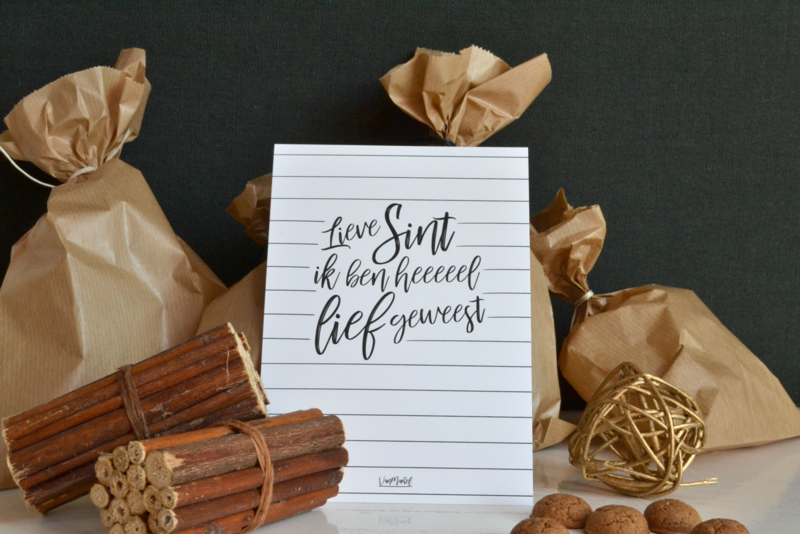 Lieve Sint
ik ben heeeeel
lief geweest